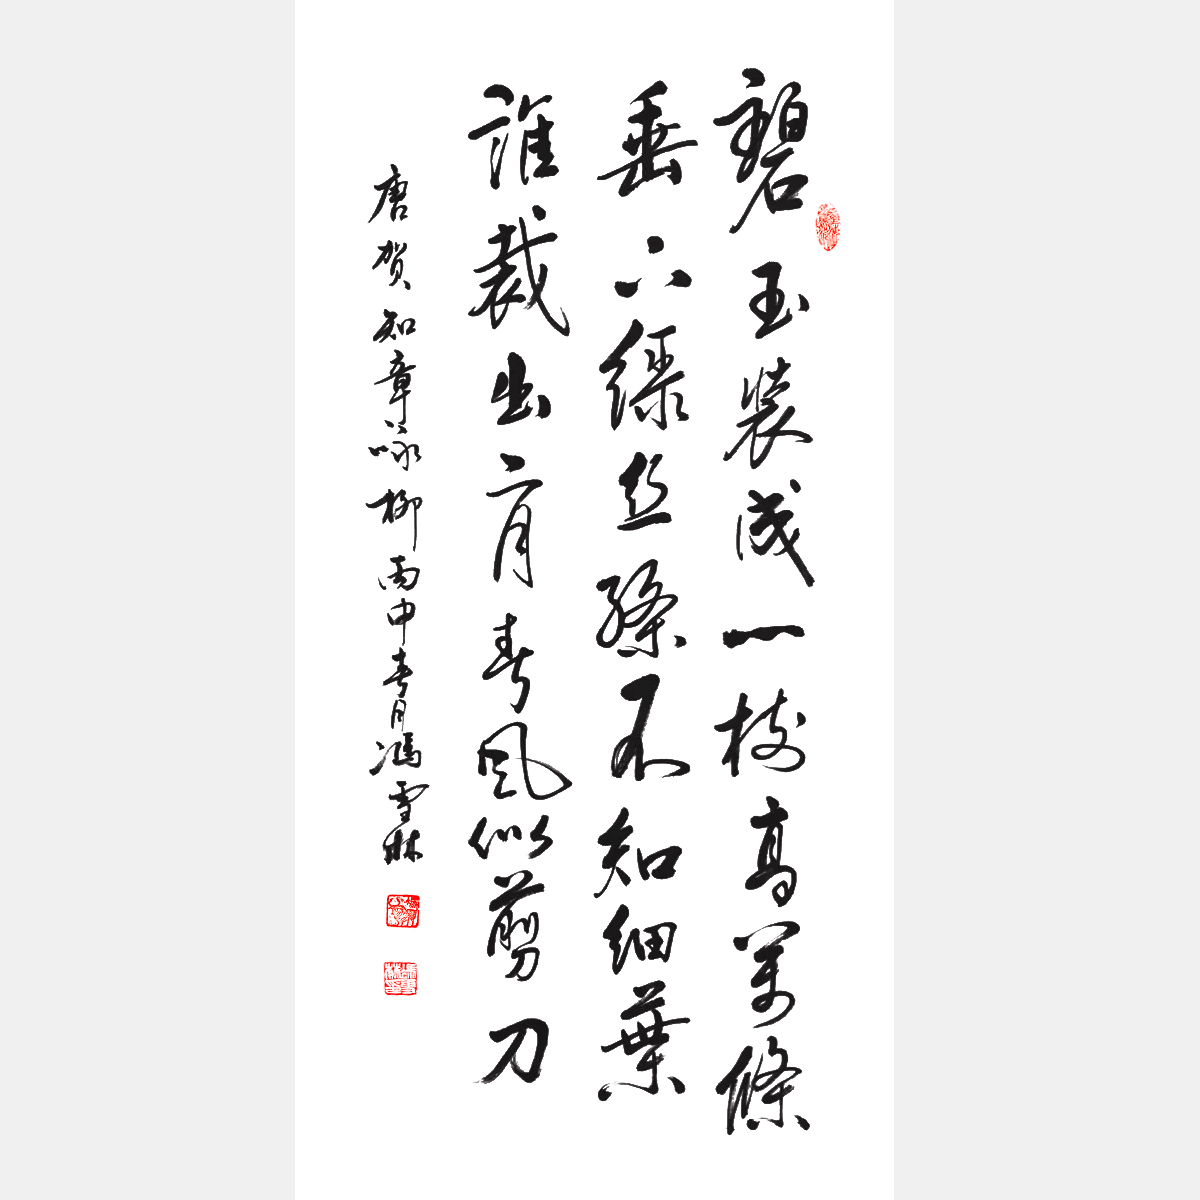 碧玉装成一树高萬條
垂下綠丝絛不知細葉
誰裁出二月春风似剪刀
唐贺知章咏柳丙申春月馮雪林